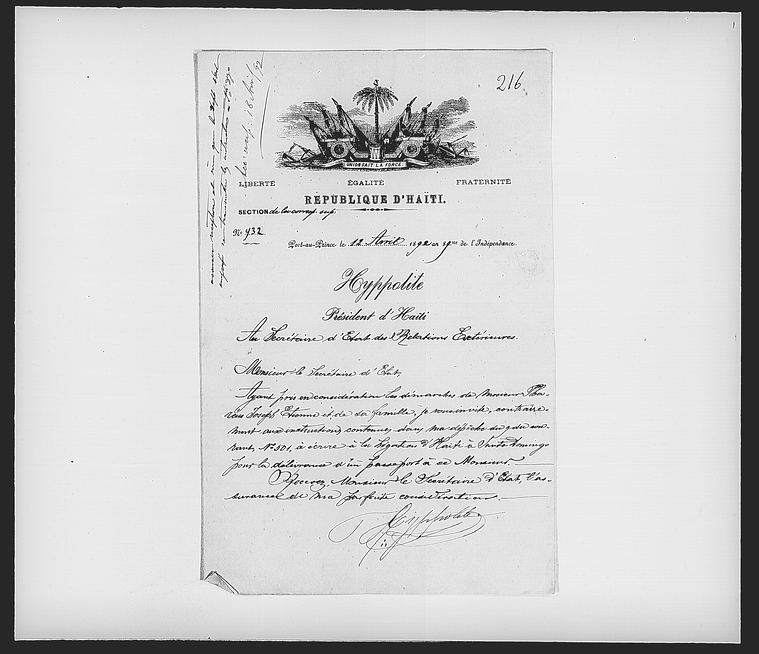 216
Rec. resp. 18 Avril/92
UNION FAIT LA FORCE
LIBERTÉ ÉGALITÉ FRATERNITÉ
RÉPUBLIQUE D'HAÏTI.
SECTION de la corresp. sup.
No 432
Port-au-Prince le 12 Avril 1892 an 89me de l'Indépendance.
Hyppolite
Président d'Haïti
Au Secrétaire d'Etat des Relations Extérieures.
Monsieur le Secrétaire d'Etat,
Ayant pris en considération les démarches de Monsieur
Joseph Etienne et de sa famille, je vous invite, contraire-
ment aux instructions contenues dans ma dépêche du 9 du cou-
rant, No 501, à écrire à la Légation d'Haïti à Santo Domingo
pour la délivrance d'un passeport à ce Monsieur.
Recevez, Monsieur le Secrétaire d'Etat, l'as-
surance de ma parfaite considération.
Hyppolite